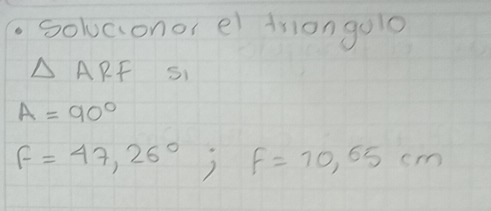 • Solucionar el triangulo
Δ ARF si
A = 90°
F = 47,26° ; f = 10,65 cm